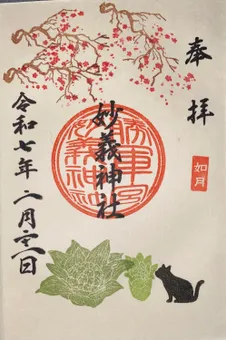 奉拝
如月
妙義神社
令和七年二月二十二日